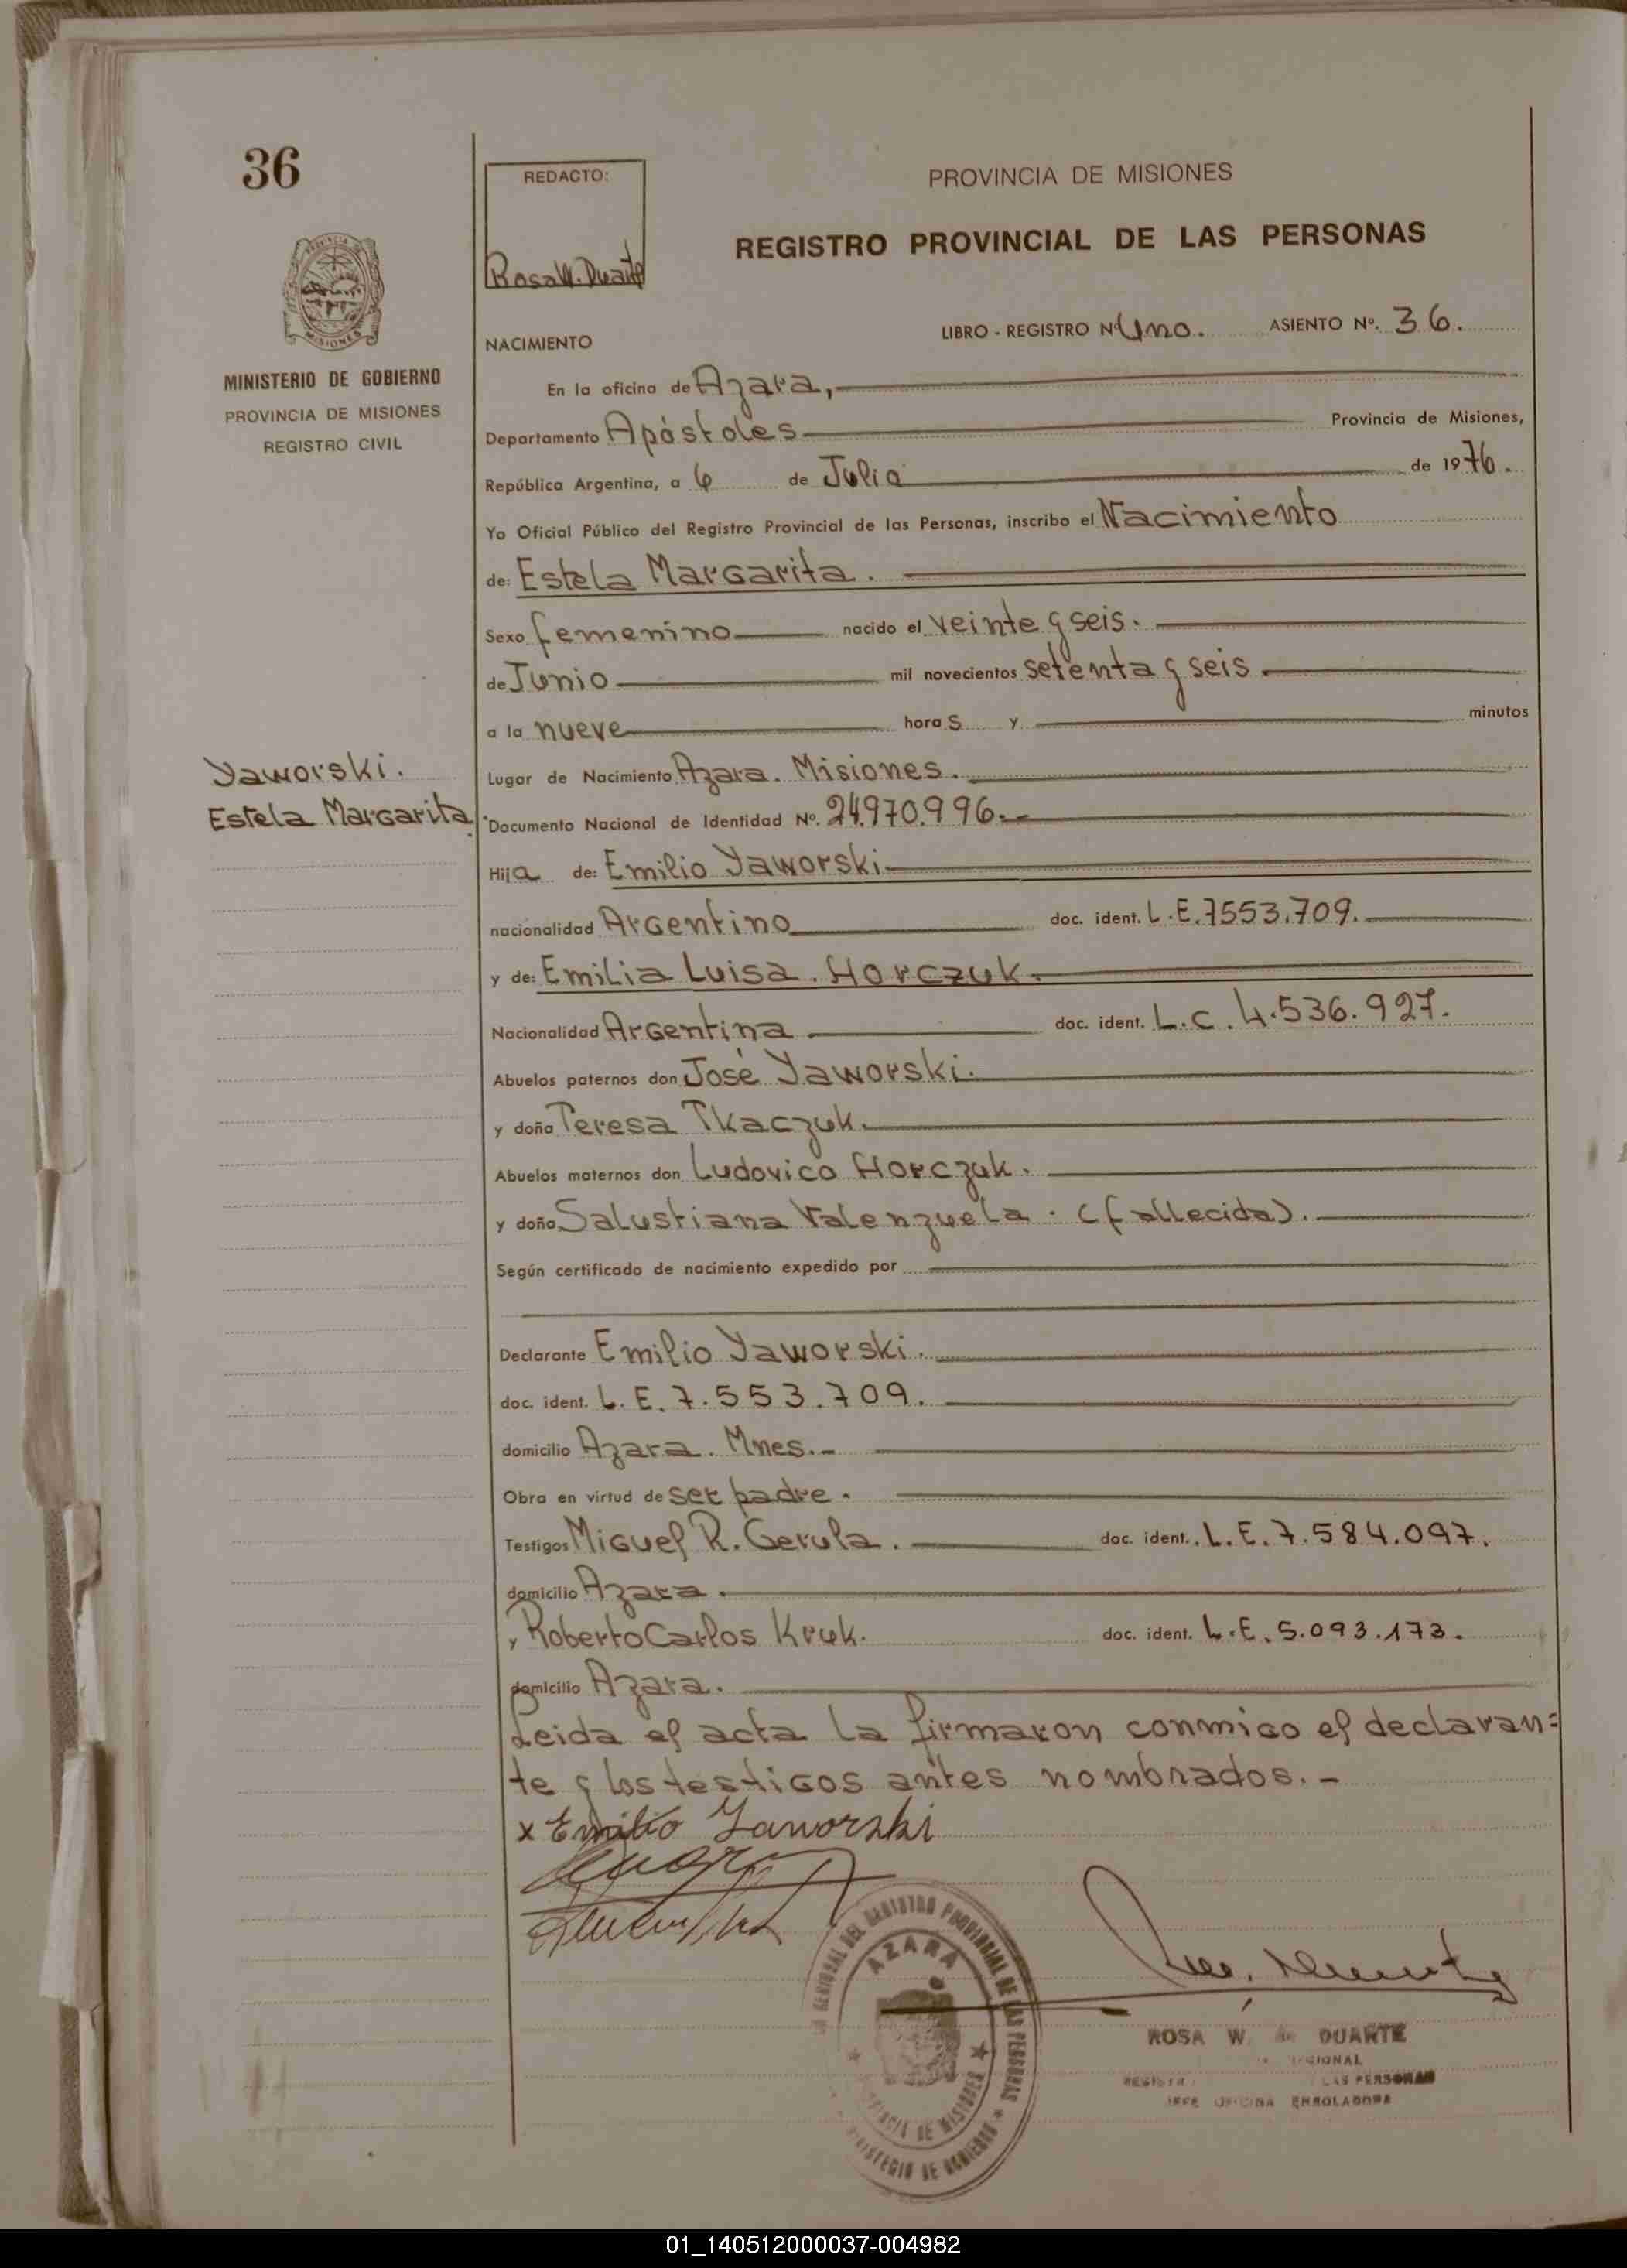 36
REDACTO:
Rosa W. Duarte
PROVINCIA DE MISIONES
REGISTRO PROVINCIAL DE LAS PERSONAS
MISIONES
MINISTERIO DE GOBIERNO
PROVINCIA DE MISIONES
REGISTRO CIVIL
NACIMIENTO
LIBRO - REGISTRO Nº Uno. ASIENTO Nº. 36.
En la oficina de Azara,
Departamento Apóstoles Provincia de Misiones,
República Argentina, a 6 de Julio de 1976.
Yo Oficial Público del Registro Provincial de las Personas, inscribo el Nacimiento
de: Estela Margarita.
Sexo femenino nacido el veinte y seis.
de Junio mil novecientos setenta y seis.
a la nueve horas y minutos
Yaworski.
Estela Margarita.
Lugar de Nacimiento Azara. Misiones.
Documento Nacional de Identidad Nº. 24.970.996.-
Hija de: Emilio Yaworski
nacionalidad Argentino doc. ident. L.E. 7553.709.
y de: Emilia Luisa. Horczuk.
Nacionalidad Argentina doc. ident. L.C. 4.536.927.
Abuelos paternos don José Yaworski.
y doña Teresa Tkaczuk.
Abuelos maternos don Ludovico Horczuk.
y doña Salustiana Valenzuela. (fallecida).
Según certificado de nacimiento expedido por
Declarante Emilio Yaworski.
doc. ident. L.E. 7.553.709.
domicilio Azara. Mnes.-
Obra en virtud de ser padre.
Testigos Miguel R. Gerula. doc. ident. L.E. 7.584.097.
domicilio Azara.
y Roberto Carlos Kruk. doc. ident. L.E. 5.093.173.
domicilio Azara.
Leida el acta la firmaron conmigo el declaran=
te y los testigos antes nombrados.-
x Emilio Yaworski
GENERAL DEL REGISTRO PROVINCIAL DE LAS PERSONAS
AZARA
PROVINCIA DE MISIONES
MINISTERIO DE GOBIERNO
ROSA W. de DUARTE
LAS PERSONAS
JEFE OFICINA ENROLADORA
01_140512000037-004982